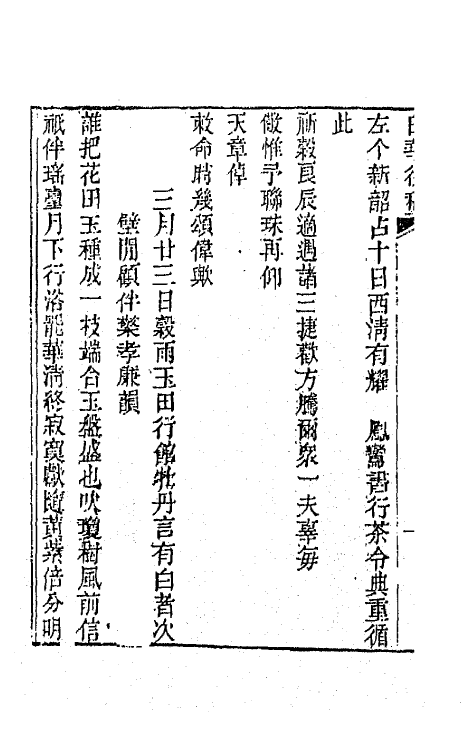 白華後稿
左个新韶占十日西淸有耀　鳳鸞書行茶令典重循
此
祈穀良辰適遇諸三捷歡方騰爾衆一夫辜毎
儆惟予聯珠再仰
天章倬
敕命時幾頌偉歟
三月廿三日穀雨玉田行館牡丹言有白者次
壁閒顧伴櫱孝廉韻
誰把花田玉種成一枝端合玉盤盛也吹瓊樹風前信
祇伴瑤臺月下行浴罷華淸終寂寞獻隨黃紫倍分明